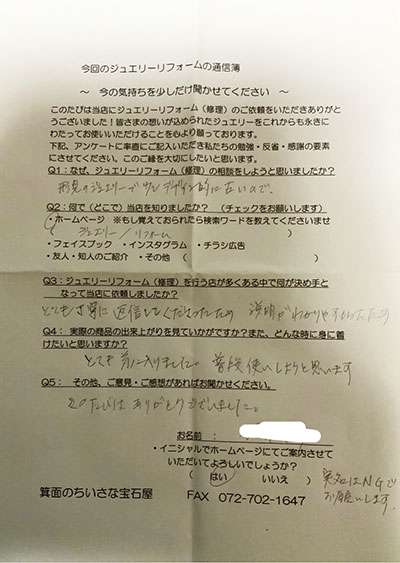 今回のジュエリーリフォームの通信簿
～ 今の気持ちを少しだけ聞かせてください ～
このたびは当店にジュエリーリフォーム（修理）のご依頼をいただきありが
とうございました！皆さまの想いが込められたジュエリーをこれからも永きに
わたってお使いいただけることを心より願っております。
下記、アンケートに率直にご記入いただき私たちの勉強・反省・感謝の要素
にさせてください。このご縁を大切にしたいと思います。
Q1：なぜ、ジュエリーリフォーム（修理）の相談をしようと思いましたか？
形見のジュエリーで デザイン的に古いので、
Q2：何で（どこで）当店を知りましたか？ （チェックをお願いします）
・ホームページ ※もし覚えておられたら検索ワードを教えてくださいませ
ジュエリー／リフォーム
・フェイスブック ・インスタグラム ・チラシ広告
・友人・知人のご紹介 ・その他（ ）
Q3：ジュエリーリフォーム（修理）を行う店が多くある中で何が決め手と
なって当店に依頼しましたか？
とても丁寧に返信してくださったため 説明がわかりやすかったため
Q4： 実際の商品の出来上がりを見ていかがですか？また、どんな時に身に着
けたいと思いますか？
とても気に入りました。普段使いしようと思います
Q5： その他、ご意見・ご感想があればお聞かせください。
このたびはありがとうございました。
お名前：
・イニシャルでホームページにてご案内させて
いただいてよろしいでしょうか？
（ はい いいえ ）
実名はNGで
お願いします。
箕面のちいさな宝石屋 FAX 072-702-1647